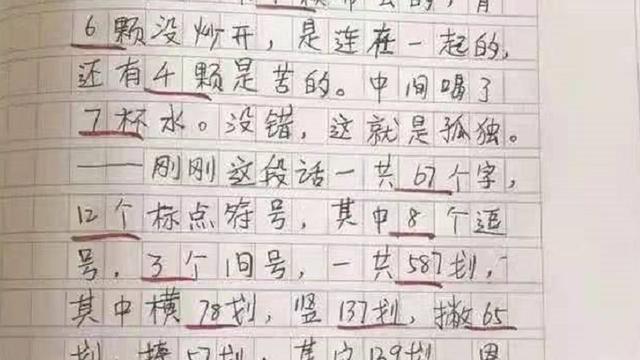 6颗没炒开，是连在一起的，
还有4颗是苦的。中间喝了
7杯水。没错，这就是孤独。
——刚刚这段话一共67个字，
12个标点符号，其中8个逗
号，3个句号，一共587划，
其中横78划，竖137划，撇65